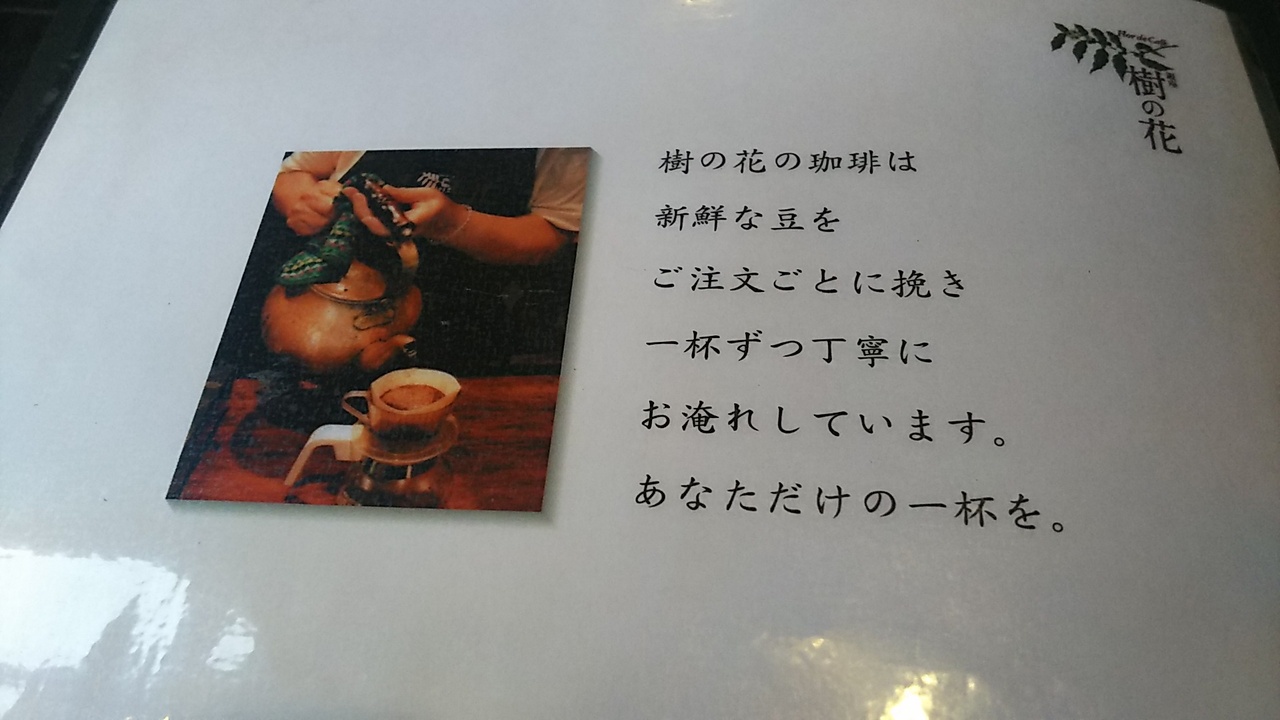 樹の花
樹の花の珈琲は
新鮮な豆を
ご注文ごとに挽き
一杯ずつ丁寧に
お淹れしています。
あなただけの一杯を。